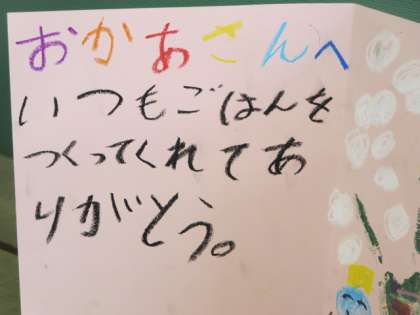 おかあさんへ
いつもごはんを
つくってくれてあ
りがとう。